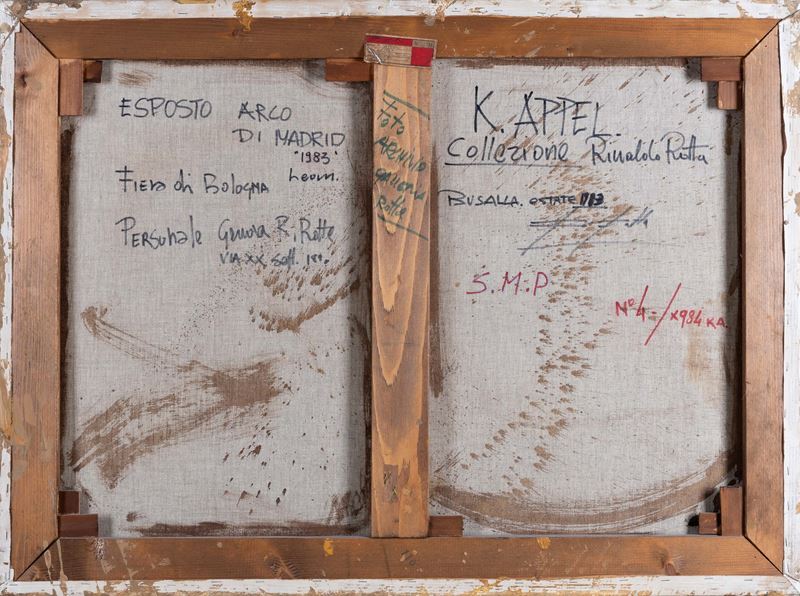 ESPOSTO ARCO
DI MADRID
"1983"
Fiera di Bologna
Personale Genova R. Rotta
VIA XX Sett.
Foto
ARCHIVIO
GALLERIA
Rotta
K. APPEL.
Collezione Rinaldo Rotta
BUSALLA. ESTATE
S.M.P
N° 4-/X984 KA.